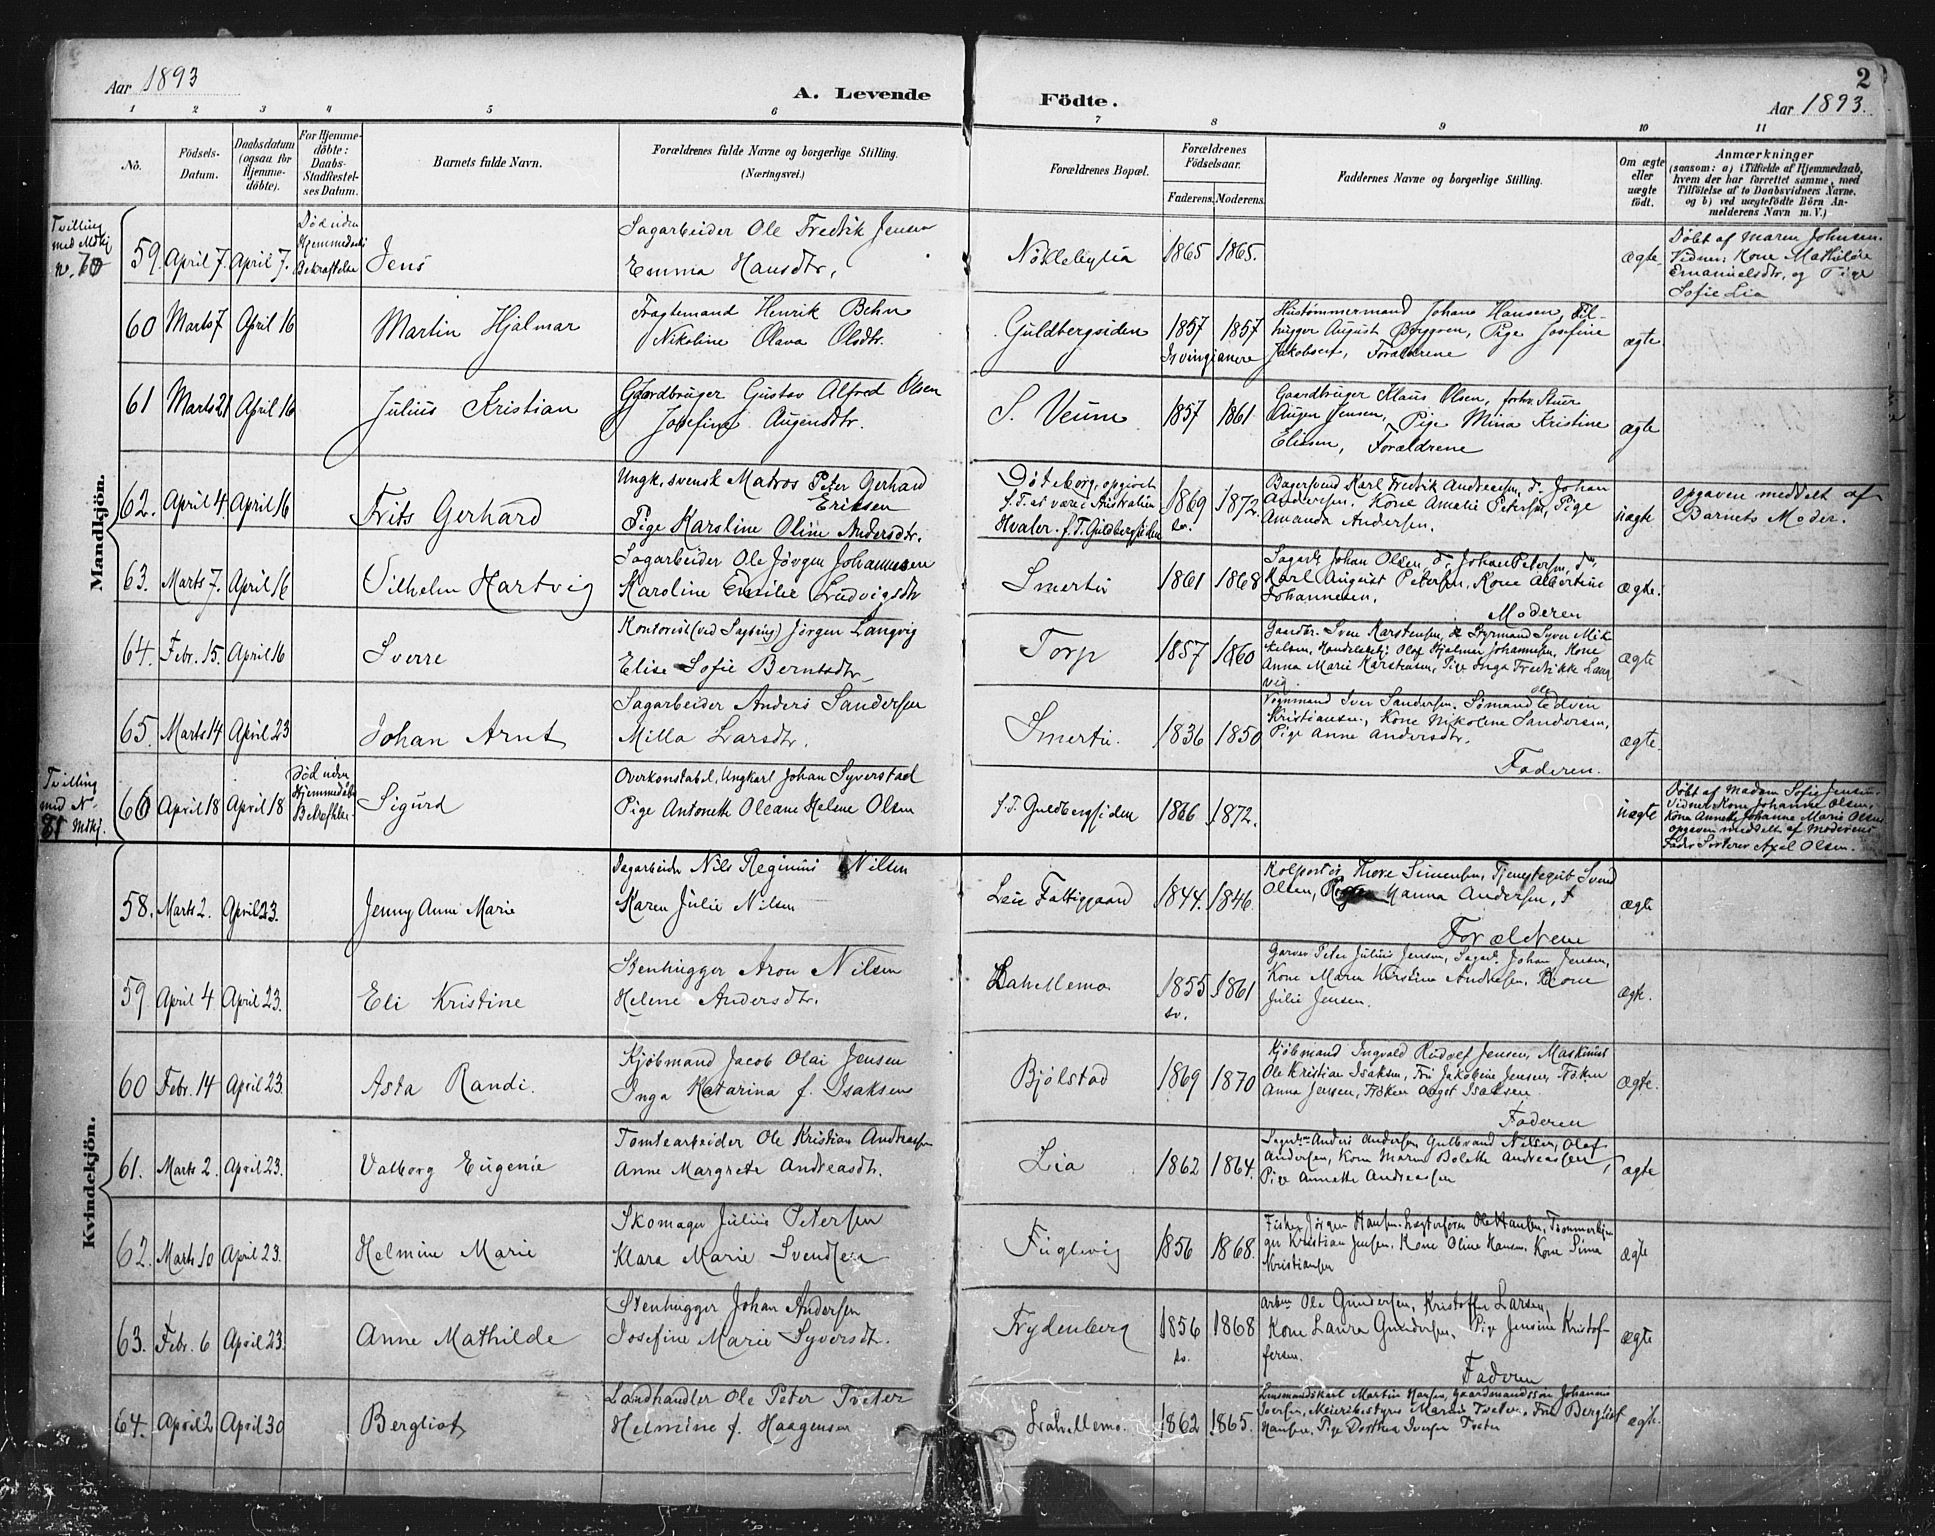 Aar 1893
A. Levende Födte.
2
Aar 1893.
1 2 3 4 5 6 7 8 9 10 11
No.
Födsels-Datum.
Daabsdatum (ogsaa for Hjemme-döbte).
For Hjemme-döbte: Daabs-Stadfæstel-ses Datum.
Barnets fulde Navn.
Forældrenes fulde Navne og borgerlige Stilling.
(Næringsvei.)
Forældrenes Bopæl.
Forældrenes Födselsaar.
Faderens. Moderens.
Faddernes Navne og borgerlige Stilling.
Om ægte eller uægte födt.
Anmærkninger
(saasom: a) i Tilfælde af Hjemmedaab, hvem der har forrettet samme, med Tilföielse af to Daabsvidners Navne, og b) ved uægtefödte Börn An-melderens Navn m. V.)
Mandkjön.
Tvilling
med Mdkj
n. 70
59. April 7. April 7.
Död uden
Hjemmedaab
Bekræftelse
Jens
Sagarbeider Ole Fredrik Jensen
Emma Hansdtr.
Nöklebylia
1865 1865.
ægte
Döbt af Maren Johnsen.
Vidner: Kone Mathilde
Emanuelsdtr, og Pige
Sofie Lia
60 Marts 7 April 16
Martin Hjalmar
Fragtemand Henrik Behn
Nikoline Olava Olsdtr.
Guldbergsiden
1857 1857
Irvingianere
Hustömmermand Johan Hansen,
hugger August Berggren, Pige Josefine
Jakobsen, Forældrene
ægte.
61 Marts 21 April 16
Julius Kristian
Gaardbruger Gustav Alfred Olsen
Josefine Augensdtr.
S. Veum
1857 1861
Gaardbruger Klaus Olsen, forhv.
Augen Jensen, Pige Mina Kristine
Eliesen, Forældrene
ægte
62. April 4. April 16
Frits Gerhard
Ungk. svensk Matros Peter Gerhard
Eriksen
Pige Karoline Oline Andersdtr.
Göteborg, opgivet
f. T. at være i Australien
Hvaler. f. T. Guldbergsiden
1869 1872.
sv.
Bagersvend Karl Fredrik Andreassen, d. Johan
Andersen, Kone Amalie Petersen, Pige
Amanda Andersen.
uægte
Opgaven meddelt af
Barnets Moder.
63. Marts 7. April 16
Vilhelm Hartvig
Sagarbeider Ole Jörgen Johannesen
Karoline Emilie Ludvigsdtr
Smertu
1861 1868
Sagarb. Johan Olsen, do Johan Petersen, do
Karl August Petersen, Kone Albertine
Johannesen,
Moderen
ægte.
64. Febr. 15. April 16
Sverre
Kontorist (ved Sagbrug) Jörgen Langvig
Elise Sofie Berntsdtr
Torp
1857 1860
Gaardbr. Sven Karstensen, Styrmand Syver Mik
kelsen, Handelsbetj. Olaf Hjalmar Johannesen, Kone
Anna Marie Karstensen, Pige Inga Fredrikke Lang
vig.
ægte
65. Marts 14 April 23
Johan Arnt
Sagarbeider Anders Sandersen
Milla Larsdtr.
Smertu.
1836 1850
Vognmand Iver Sandersen, Sömand Ole Edvin
Kristiansen, Kone Nikoline Sandersen,
Pige Anne Andersdtr.
Faderen.
ægte
Tvilling
med N.
81 Mdkj.
66 April 18 April 18
Död uden
Hjemmedaabs
Bekræftelse
Sigurd
Overkonstabel, Ungkarl Johan Syverstad
Pige Antonette Oleane Helene Olsen
f. T. Guldbergsiden
1866 1872.
uægte
Döbt af Madam Sofie Jensen.
Vidner Kone Johanne Olsen,
Kone Annette Johanne Marie Olsen
opgaven meddelt af Moderens
Fader Sorterer Axel Olsen.
Kvindekjön.
58. Marts 2. April 23.
Jenny Anne Marie
Sagarbeider Nils Reginius Nilsen
Karen Julie Nilsen
Leie Fattiggaard
1844. 1846.
Kolportör Thore Simensen, Tjenestegut Svend
Olsen, Hanna Andersen,
Forældrene
ægte
59 April 4 April 23.
Eli Kristine
Stenhugger Aron Nilsen
Helene Andersdtr.
Lahellemo
1855 1861
sv.
Garver Peter Julius Jensen, Sagarb. Johan Jensen,
Kone Maren Kirstine Andresen, Kone
Julie Jensen.
ægte.
60 Febr. 14 April 23.
Asta Randi.
Kjöbmand Jacob Olai Jensen
Inga Katarina f. Isaksen
Bjölstad
1869 1870
Kjöbmand Ingvald Rudolf Jensen, Maskinist
Ole Kristian Isaksen, Fru Jakobine Jensen, Fröken
Anna Jensen, Fröken Aagot Isaksen
Faderen
ægte.
61. Marts 2. April 23.
Valborg Eugenie
Tomtearbeider Ole Kristian Andreassen
Anne Margrete Andreasdtr.
Lia
1862 1864.
Sagarb. Anders Andersen, Gulbrand Nilsen, Olaf
Andersen, Kone Maren Bolette Andreassen,
Pige Annette Andreassen
ægte
62. Marts 10 April 23.
Helmine Marie
Skomager Julius Petersen
Klara Marie Svendsen
Fuglevig
1856 1868.
Fisker Jörgen Hansen, Ole Hansen, Tömmerhug
ger Kristian Jensen, Kone Oline Hansen, Kone Sina
Kristiansen
ægte
63. Febr. 6 April 23.
Anne Mathilde
Stenhugger Johan Andersen
Josefine Marie Syversdtr.
Frydenberg
1856 1868
sv.
Arbm Ole Gundersen, Kristoffer Larsen,
Kone Laura Gundersen, Pige Jensine Kristof-
fersen.
Faderen
ægte
64. April 2 April 30
Bergliot
Landhandler Ole Peter Tveter
Helmine f. Haagensen
Lahellemo.
1862 1865.
Lensmandskarl Martin Hansen, Gaardmandssön Johannes
Iversen, Meieribestyrer Marius Tveter, Fru Bergliot
Hansen, Pige Dorthea Iversen Tveter
ægte.